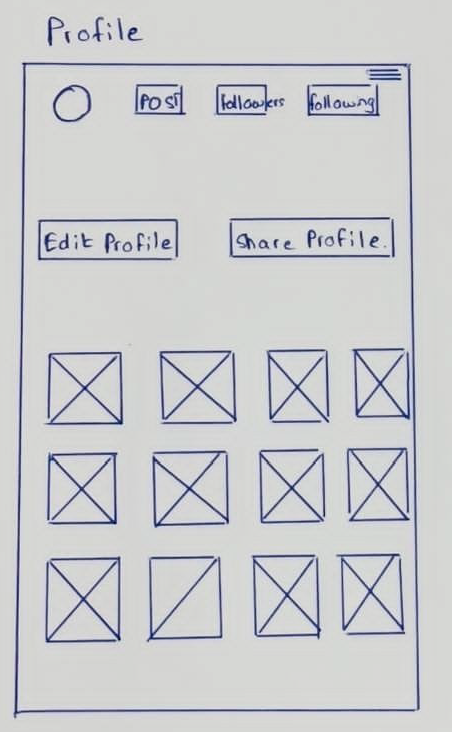 Profile
POST followers following
Edit Profile Share Profile.